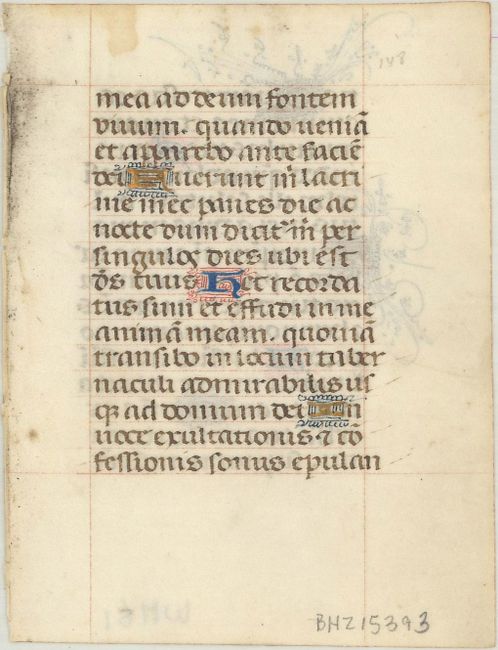 148
mea ad deum fontem
vivum. quando veniā
et apparebo ante faciē
dei Fuerunt m̄ lacri
me mee panes die ac
nocte dum dicit᷑ m̄ per
singulos dies ubi est
d̄s tuus Hec recorda
tus sum et effudi in me
animā meam. quoniā
transibo in locum taber
naculi admirabilis us
qꝫ ad domum dei In
voce exultationis ⁊ cō
fessionis sonus epulan
BHZ15393